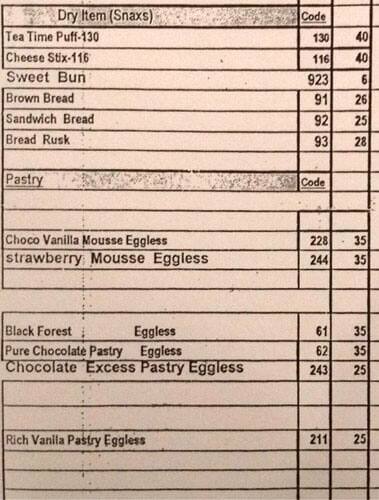 Dry Item (Snaxs) Code
Tea Time Puff-130 130 40
Cheese Stix-116 116 40
Sweet Bun 923 6
Brown Bread 91 26
Sandwich Bread 92 25
Bread Rusk 93 28
Pastry Code
Choco Vanilla Mousse Eggless 228 35
strawberry Mousse Eggless 244 35
Black Forest Eggless 61 35
Pure Chocolate Pastry Eggless 62 35
Chocolate Excess Pastry Eggless 243 25
Rich Vanila Pastry Eggless 211 25